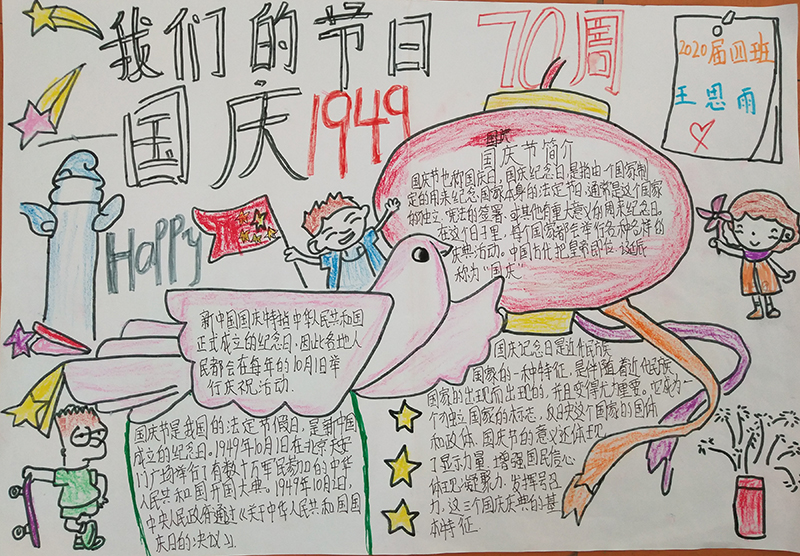 我们的节日
国庆
1949
70周
2020届四班
王思雨
Happy
国庆
国庆节简介
国庆节也称国庆日,国庆纪念日,是指由一个国家制
定的用来纪念国家本身的法定节日,通常是这个国家
的独立、宪法的签署、或其他有重大意义的周来纪念日。
在这个日子里,每个国家都会举行各种各样的
庆典活动。中国古代把皇帝即位、诞辰
称为“国庆”
新中国国庆特指中华人民共和国
正式成立的纪念日,因此各地人
民都会在每年的10月1日举
行庆祝活动.
国庆节是我国的法定节假日,是新中国
成立的纪念日。1949年10月1日在北京天安
门广场举行了有数十万军民参加的中华
人民共和国开国大典。1949年10月2日,
中央人民政府通过《关于中华人民共和国国
庆日的决议》.
国庆纪念日是近代民族
国家的一种特征,是伴随着近代民族
国家的出现而出现的,并且变得尤为重要。它成为一
个独立国家的标志,反映这个国家的国体
和政体。国庆节的意义还体现
了显示力量、增强国民信心
体现凝聚力,发挥号召
力,这三个国庆庆典的基
本特征.